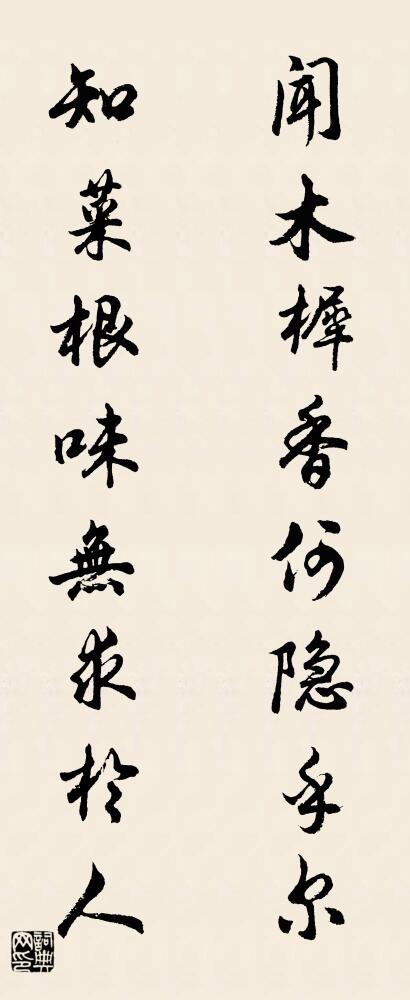 闻木樨香何隐乎尔
知菜根味無求於人
詞典网印